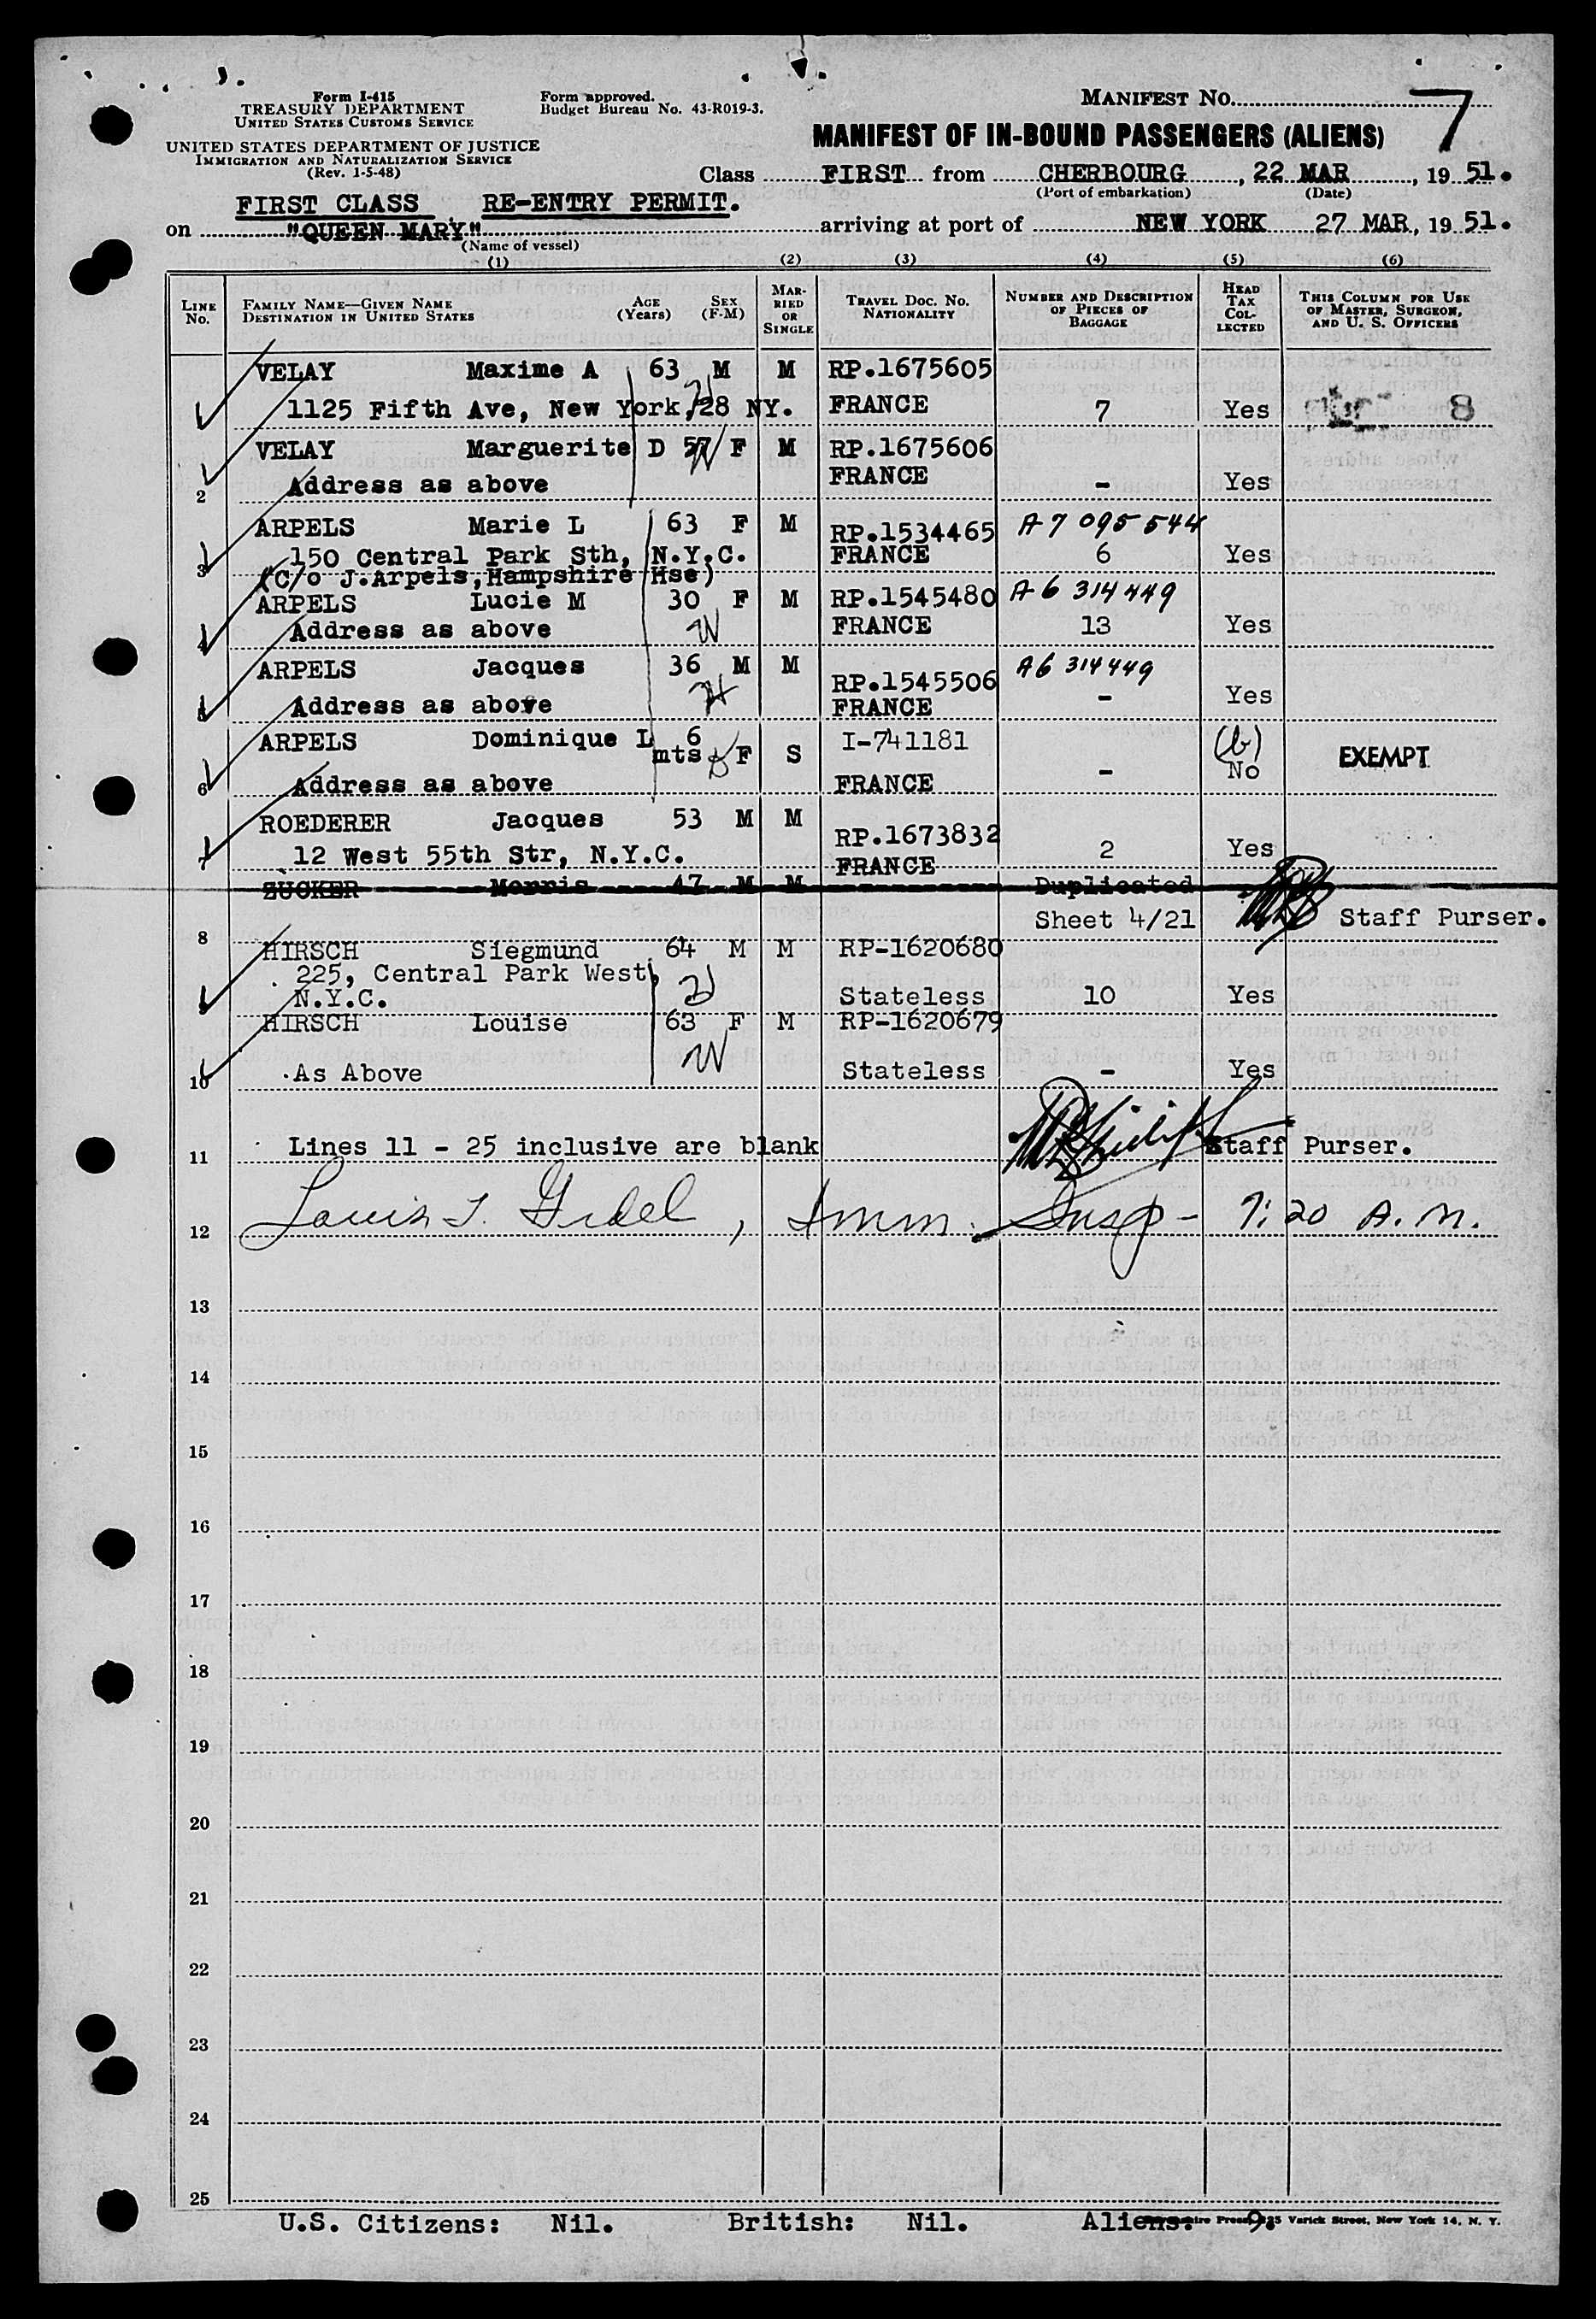 Form I-415
TREASURY DEPARTMENT
UNITED STATES CUSTOMS SERVICE
UNITED STATES DEPARTMENT OF JUSTICE
IMMIGRATION AND NATURALIZATION SERVICE
(Rev. 1-5-48)
Form approved.
Budget Bureau No. 43-R019-3.
MANIFEST No. 7
MANIFEST OF IN-BOUND PASSENGERS (ALIENS)
Class FIRST from CHERBOURG, 22 MAR, 19 51.
(Port of embarkation) (Date)
FIRST CLASS. RE-ENTRY PERMIT.
on "QUEEN MARY" arriving at port of NEW YORK 27 MAR, 19 51.
(Name of vessel)
(1) (2) (3) (4) (5) (6)
LINE No. FAMILY NAME—GIVEN NAME DESTINATION IN UNITED STATES AGE (Years) SEX (F-M) MARRIED OR SINGLE TRAVEL DOC. NO. NATIONALITY NUMBER AND DESCRIPTION OF PIECES OF BAGGAGE HEAD TAX COLLECTED THIS COLUMN FOR USE OF MASTER, SURGEON, AND U. S. OFFICERS
VELAY Maxime A 63 M M RP.1675605
1125 Fifth Ave, New York,28 NY. FRANCE 7 Yes 8
VELAY Marguerite D 57 F M RP.1675606
2 Address as above FRANCE - Yes
ARPELS Marie L 63 F M RP.1534465 A7 095 544
3 150 Central Park Sth, N.Y.C. FRANCE 6 Yes
(C/o J.Arpels,Hampshire Hse)
ARPELS Lucie M 30 F M RP.1545480 A6 314 449
Address as above W FRANCE 13 Yes
ARPELS Jacques 36 M M RP.1545506 A6 314449
5 Address as above H FRANCE - Yes
ARPELS Dominique L 6 mts F S I-741181 (b)
6 Address as above FRANCE - No EXEMPT
ROEDERER Jacques 53 M M RP.1673832
7 12 West 55th Str, N.Y.C. FRANCE 2 Yes
ZUCKER Morris 47 M M Duplicated
8 Sheet 4/21 Staff Purser.
HIRSCH Siegmund 64 M M RP-1620680
225, Central Park West,
9 N.Y.C. Stateless 10 Yes
HIRSCH Louise 63 F M RP-1620679
10 As Above W Stateless - Yes
11 Lines 11 - 25 inclusive are blank Staff Purser.
12 Louis J. Gidel, Imm. Insp - 7:20 A.M.
13
14
15
16
17
18
19
20
21
22
23
24
25
U.S. Citizens: Nil. British: Nil. Aliens: 9.
Varick Street, New York 14, N. Y.